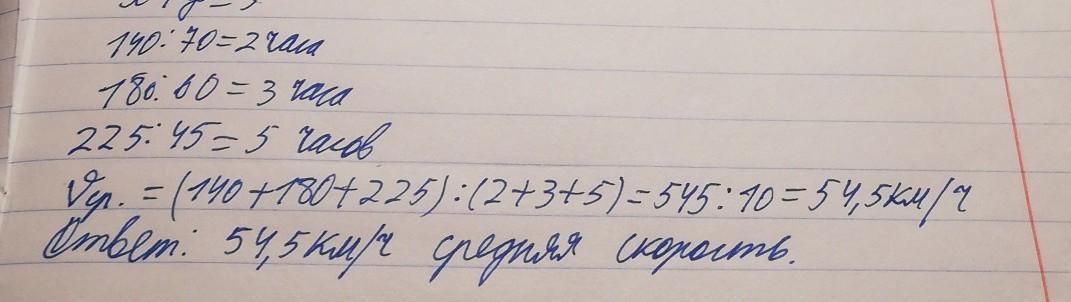 140:70=2 часа
180:60=3 часа
225:45=5 часов
Vср.=(140+180+225):(2+3+5)=545:10=54,5км/ч
Ответ: 54,5км/ч средняя скорость.